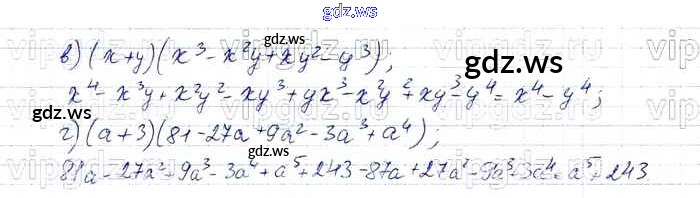 gdz.ws
в) (x+y)(x³-x²y+xy²-y³);
x⁴-x³y+x²y²-xy³+yx³-x²y²+xy³-y⁴=x⁴-y⁴;
г) (a+3)(81-27a+9a²-3a³+a⁴);
81a-27a²+9a³-3a⁴+a⁵+243-87a+27a²-9a³+3a⁴=a⁵+243